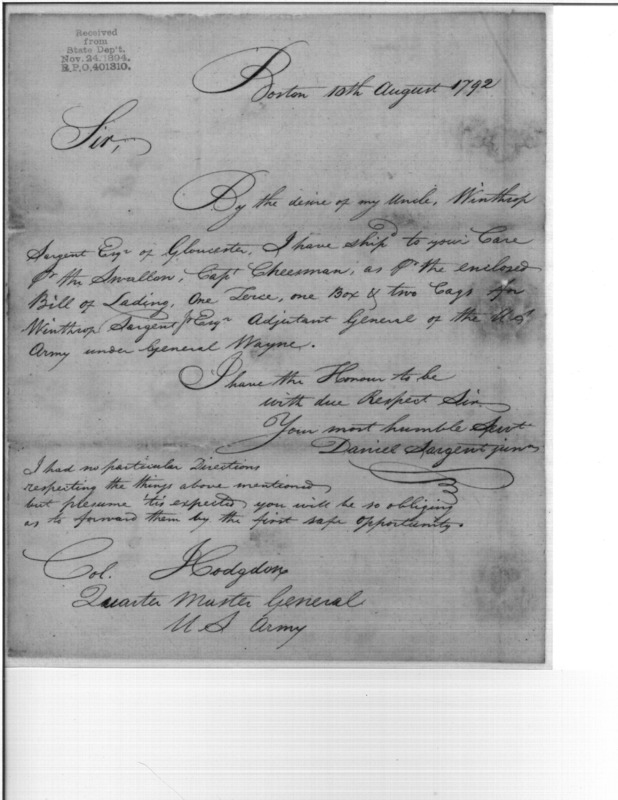 Received
from
State Dep't.
Nov. 24, 1894.
R.P.O. 401310.
Boston 10th August 1792
Sir,
By the desire of my Uncle, Winthrop
Sargent Esqr of Gloucester, I have ship'd to your Care
pr the Swallow, Capt Cheesman, as pr the enclosed
Bill of Lading, One Terce, one Box & two Cags for
Winthrop Sargent Jr Esqr Adjutant General of the
Army under General Wayne.
I have the Honour to be
with due Respect Sir
Your most humble Servt
Daniel Sargent junr
I had no particular Directions
respecting the things above mentioned,
but presume 'tis expected you will be so obliging
as to forward them by the first safe opportunity.
Col. Hodgdon
Quarter Master General
U S Army